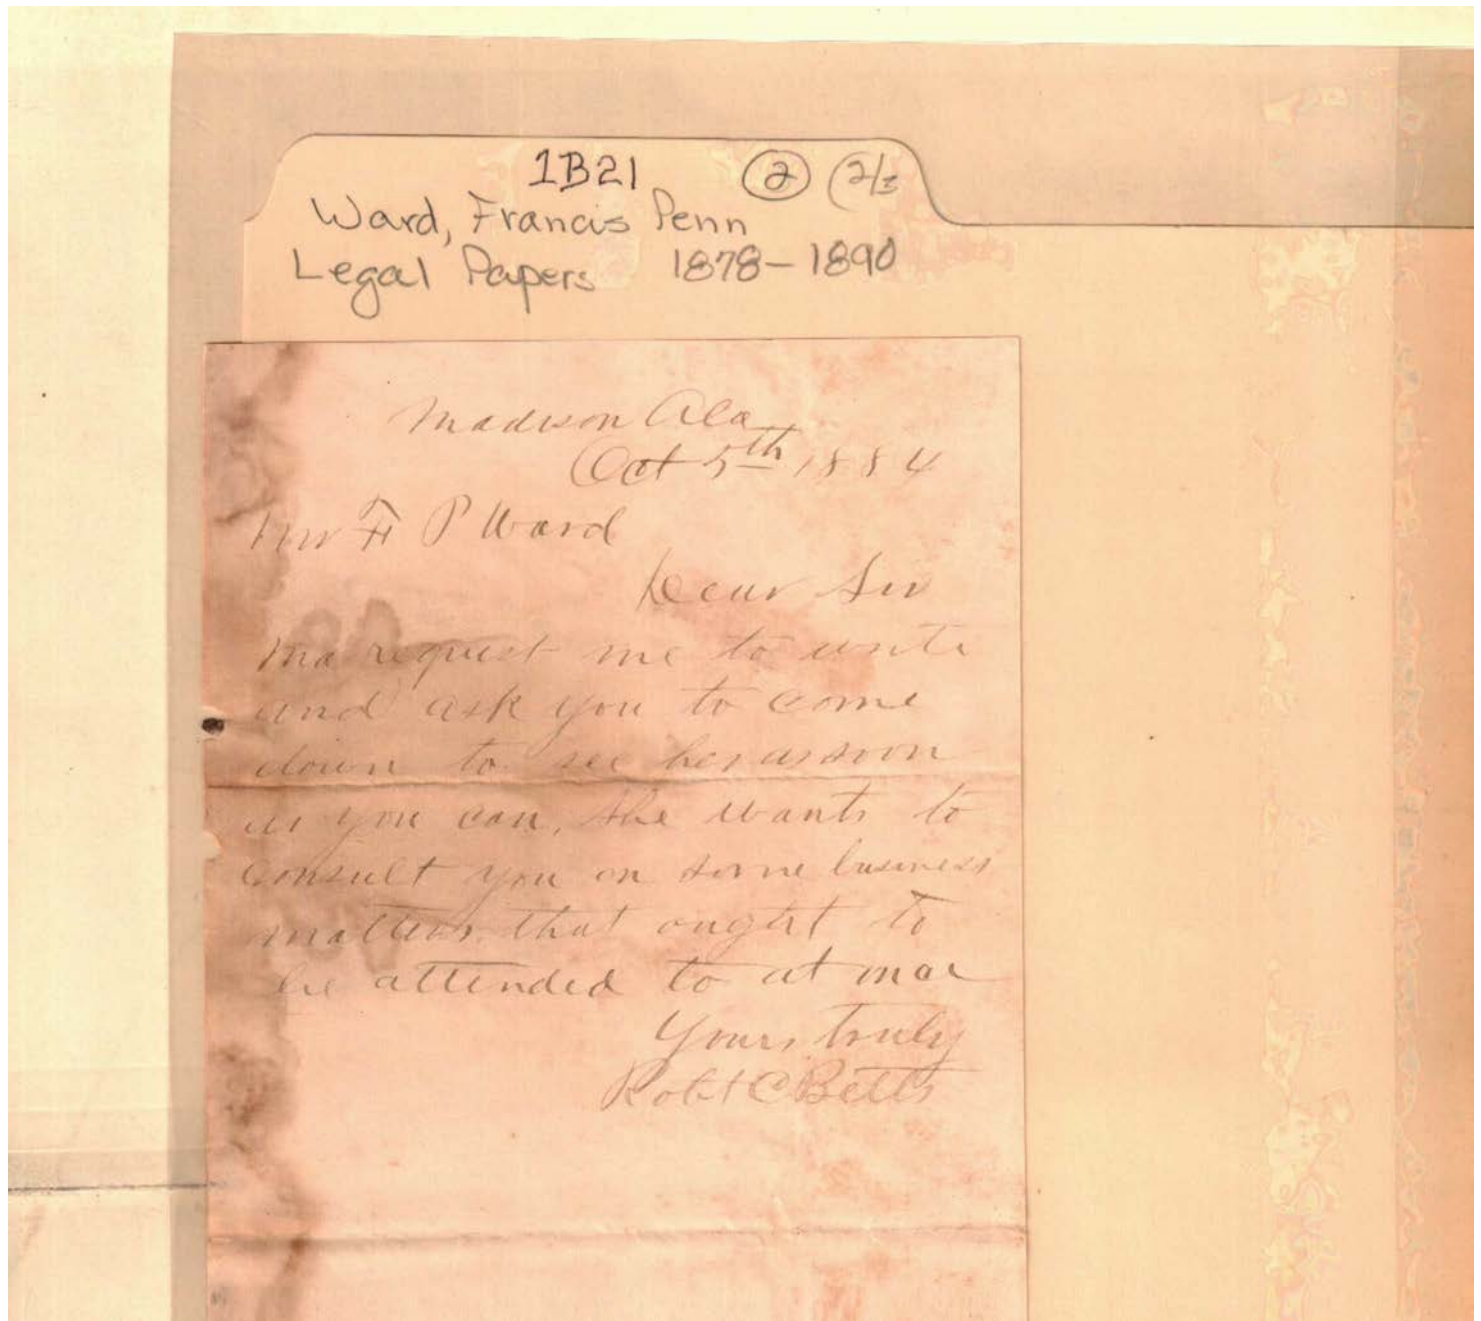 1B21 2 (2/2
Ward, Francis Penn
Legal Papers 1878-1890
Madison Ala
Oct 5th 1884
Mr F P Ward
Dear Sir
Ma request me to write
and ask you to come
down to see her as soon
as you can, she wants to
consult you on some business
matters that ought to
be attended to at once
Yours truly
Robt C Betts